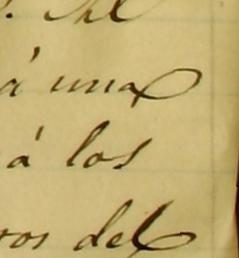 á una
á los
ros del